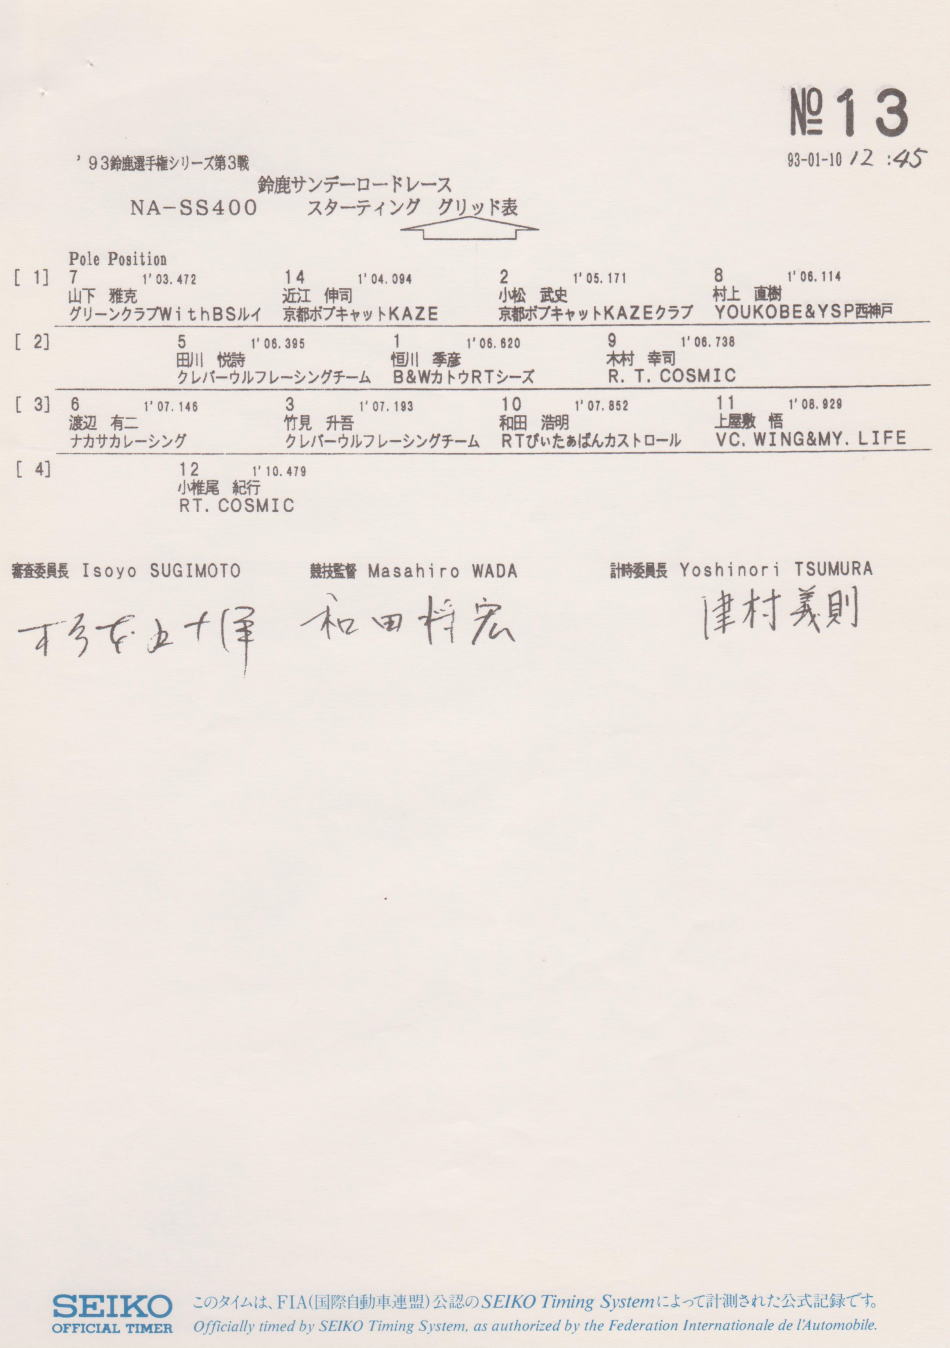 №13
93-01-10 12:45
'93鈴鹿選手権シリーズ第3戦
鈴鹿サンデーロードレース
NA-SS400 スターティング グリッド表
Pole Position
[ 1] 7 1'03.472 14 1'04.094 2 1'05.171 8 1'06.114
山下 雅克 近江 伸司 小松 武史 村上 直樹
グリーンクラブWithBSルイ 京都ボブキャットKAZE 京都ボブキャットKAZEクラブ YOUKOBE&YSP西神戸
[ 2] 5 1'06.395 1 1'06.620 9 1'06.738
田川 悦詩 恒川 季彦 木村 幸司
クレバーウルフレーシングチーム B&WカトウRTシーズ R. T. COSMIC
[ 3] 6 1'07.146 3 1'07.193 10 1'07.852 11 1'08.929
渡辺 有二 竹見 升吾 和田 浩明 上屋敷 悟
ナカサカレーシング クレバーウルフレーシングチーム RTぴぃたぁぱんカストロール VC. WING&MY. LIFE
[ 4] 12 1'10.479
小椎尾 紀行
RT. COSMIC
審査委員長 Isoyo SUGIMOTO 競技監督 Masahiro WADA 計時委員長 Yoshinori TSUMURA
和田将宏 津村義則
SEIKO このタイムは、FIA(国際自動車連盟)公認のSEIKO Timing Systemによって計測された公式記録です。
OFFICIAL TIMER Officially timed by SEIKO Timing System, as authorized by the Federation Internationale de l'Automobile.